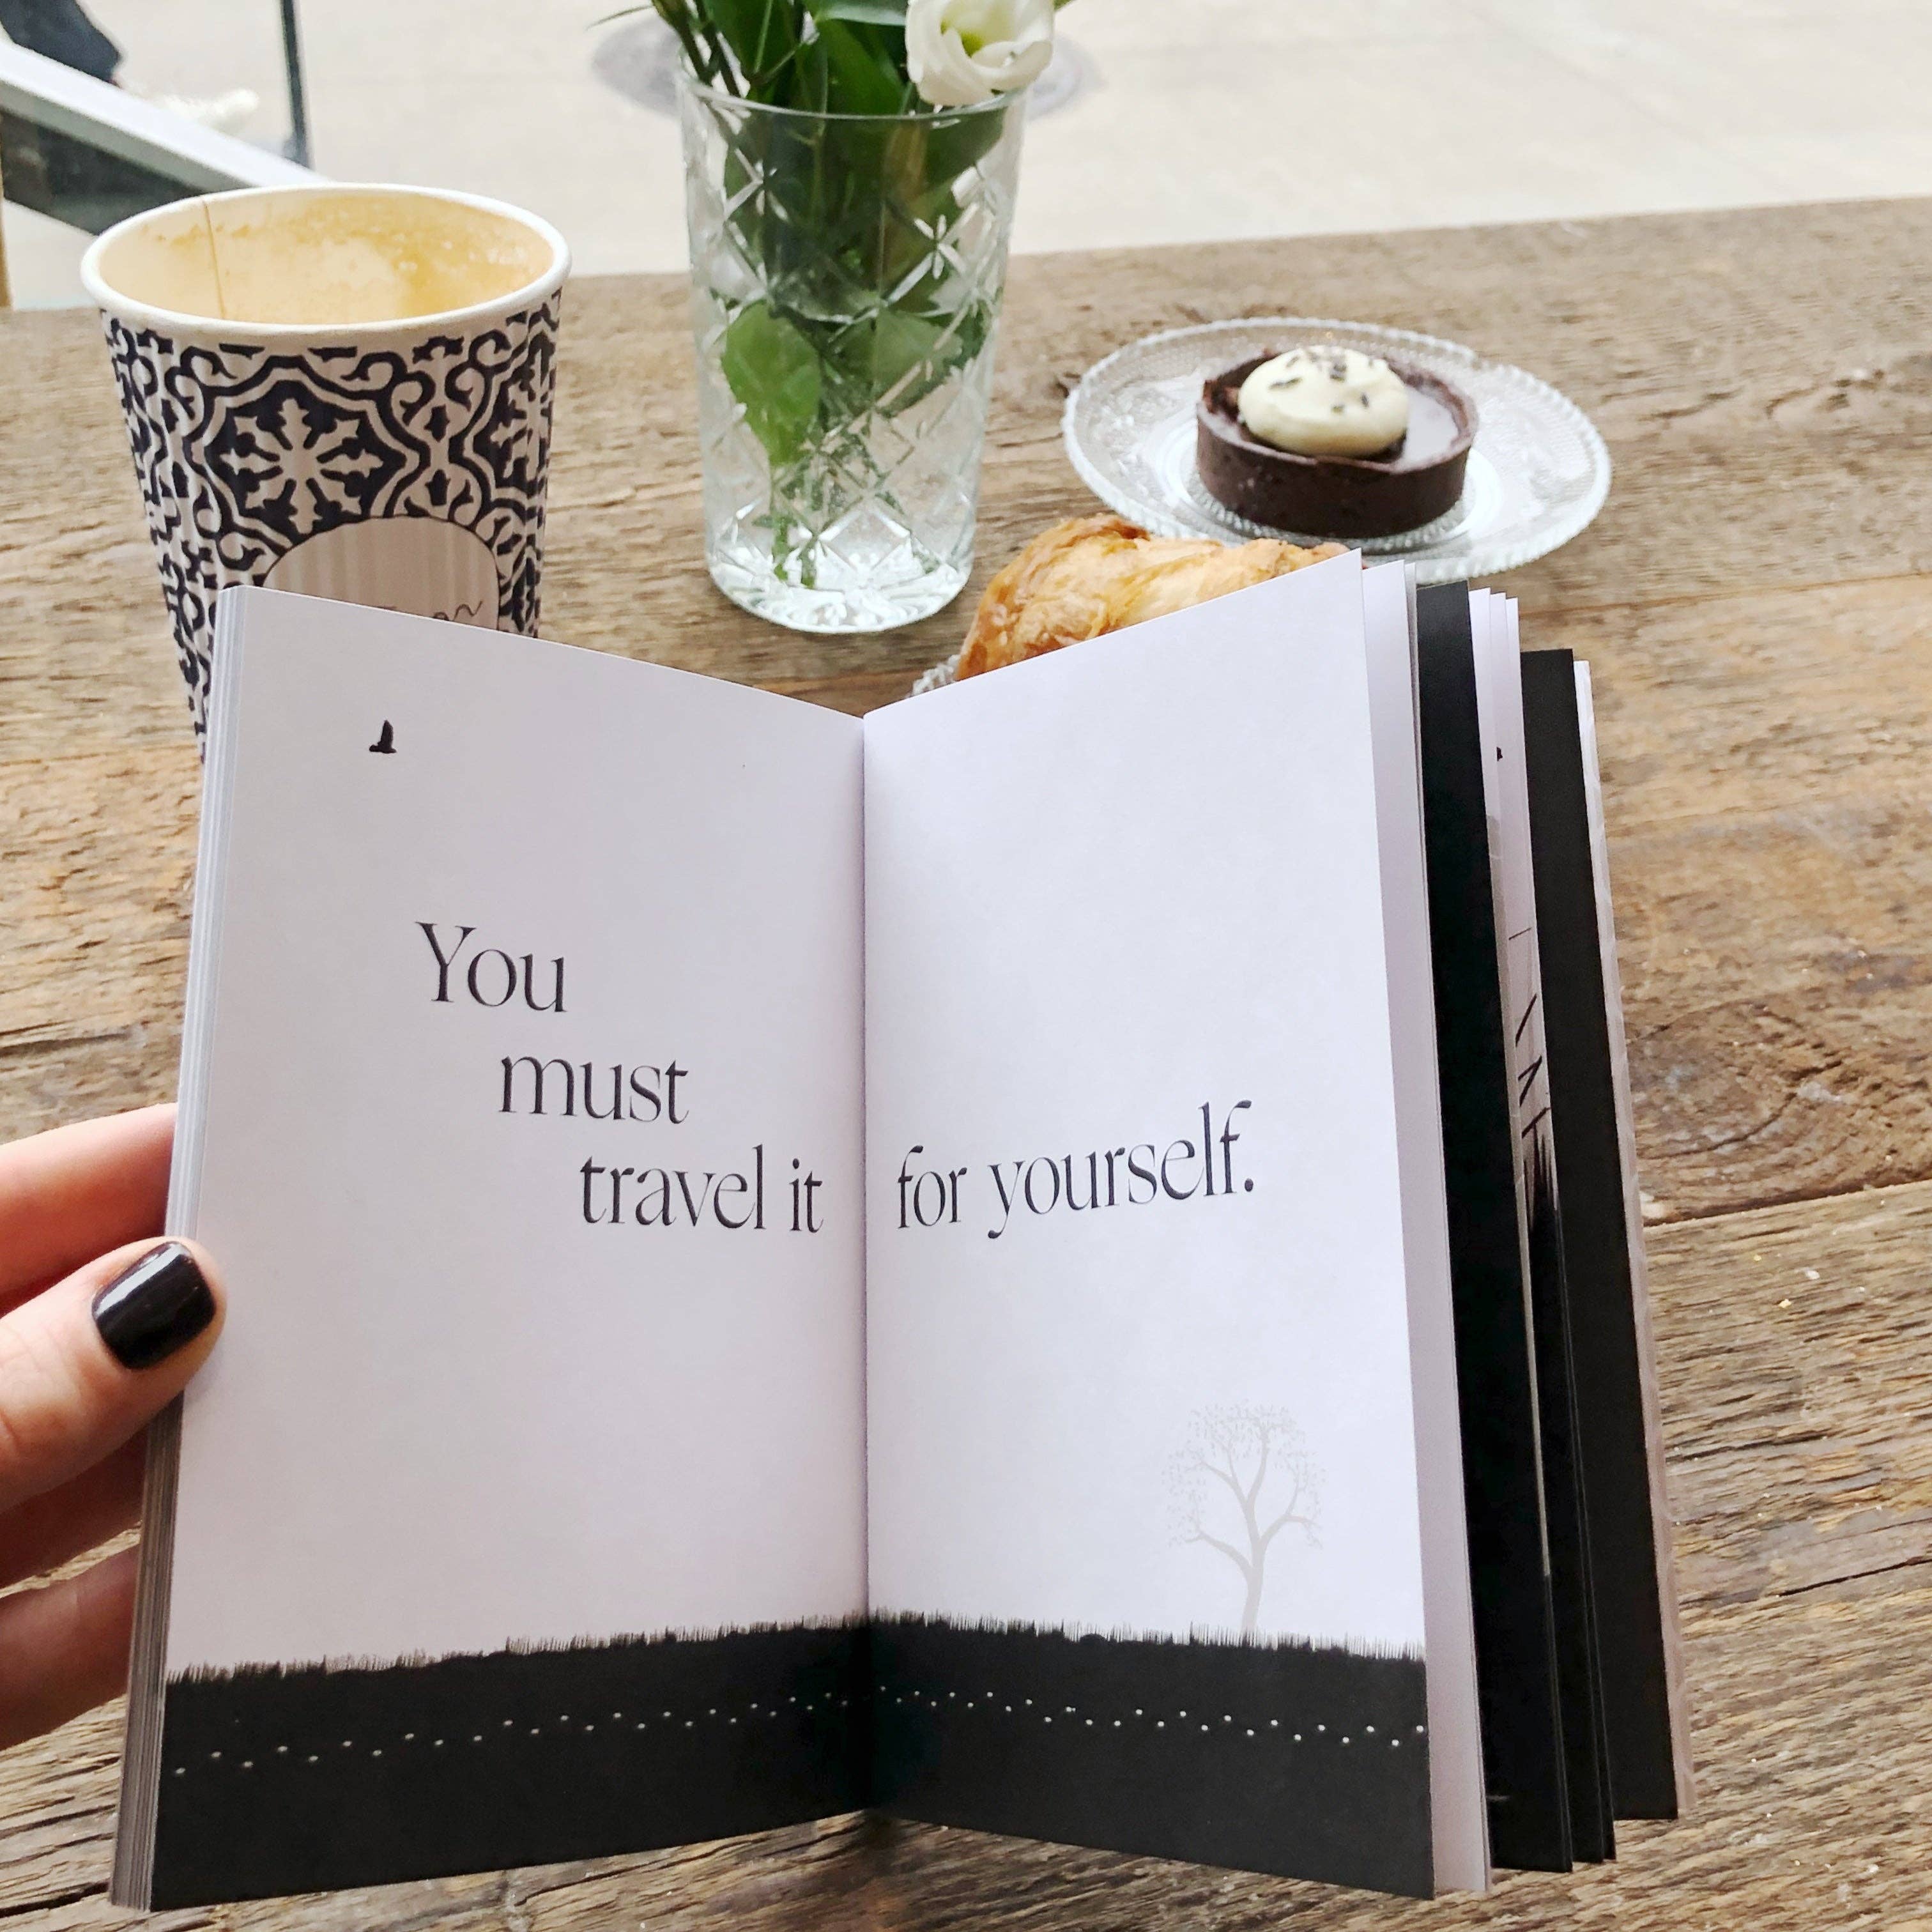 You
must
travel it for yourself.